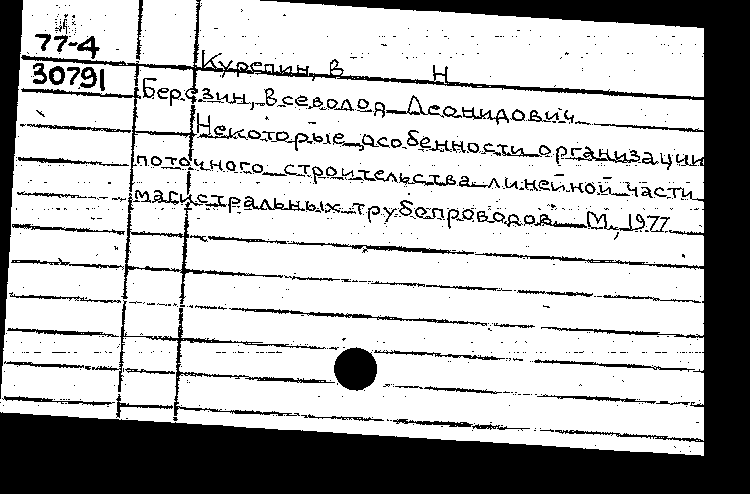 77-4
30791
Курепин, В Н
Березин, Всеволод Леонидович
Некоторые особенности организации
поточного строительства линейной части
магистральных трубопроводов М., 1977